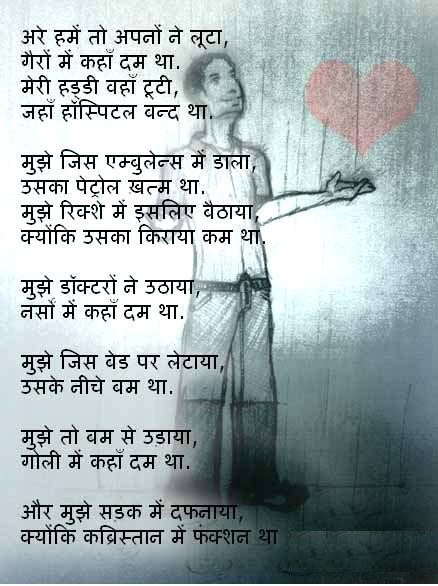 अरे हमें तो अपनों ने लूटा,
गैरों में कहाँ दम था.
मेरी हड्डी वहाँ टूटी,
जहाँ हॉस्पिटल बन्द था.
मुझे जिस एम्बुलेन्स में डाला,
उसका पेट्रोल ख़त्म था.
मुझे रिक्शे में इसलिए बैठाया,
क्योंकि उसका किराया कम था.
मुझे डॉक्टरों ने उठाया,
नर्सों में कहाँ दम था.
मुझे जिस बेड पर लेटाया,
उसके नीचे बम था.
मुझे तो बम से उड़ाया,
गोली में कहाँ दम था.
और मुझे सड़क में दफनाया,
क्योंकि कब्रिस्तान में फंक्शन था